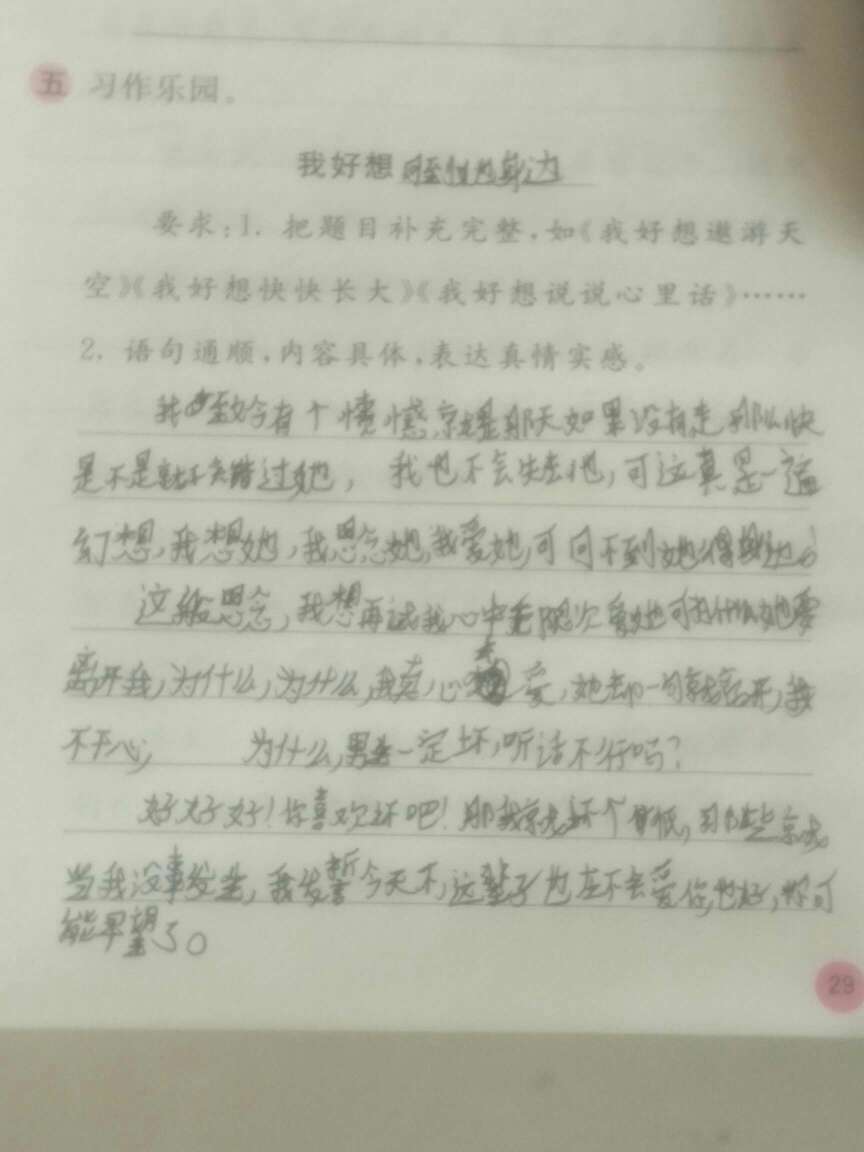 五 习作乐园。
我好想回到她身边
要求:1. 把题目补充完整,如《我好想遨游天
空》《我好想快快长大》《我好想说说心里话》……
2. 语句通顺,内容具体,表达真情实感。
我至今有个愤憾,就是那天如果没有走那么快
是不是就不会错过她,我也不会失去他,可这真是一遍
幻想,我想她,我思念她,我爱她,可回不到她得身边
这般思念,我想再试我心中 次爱她可为什么她要
离开我,为什么,为什么,我真心 爱,她却一句就离开,我
不开心, 为什么,男 一定坏,听话不行吗?
好好好!你喜欢坏吧!那我就坏个 低,那些就
当我没事发生,我发誓今天不,这辈子也在不会爱你,也好,你可
能早望了。
29